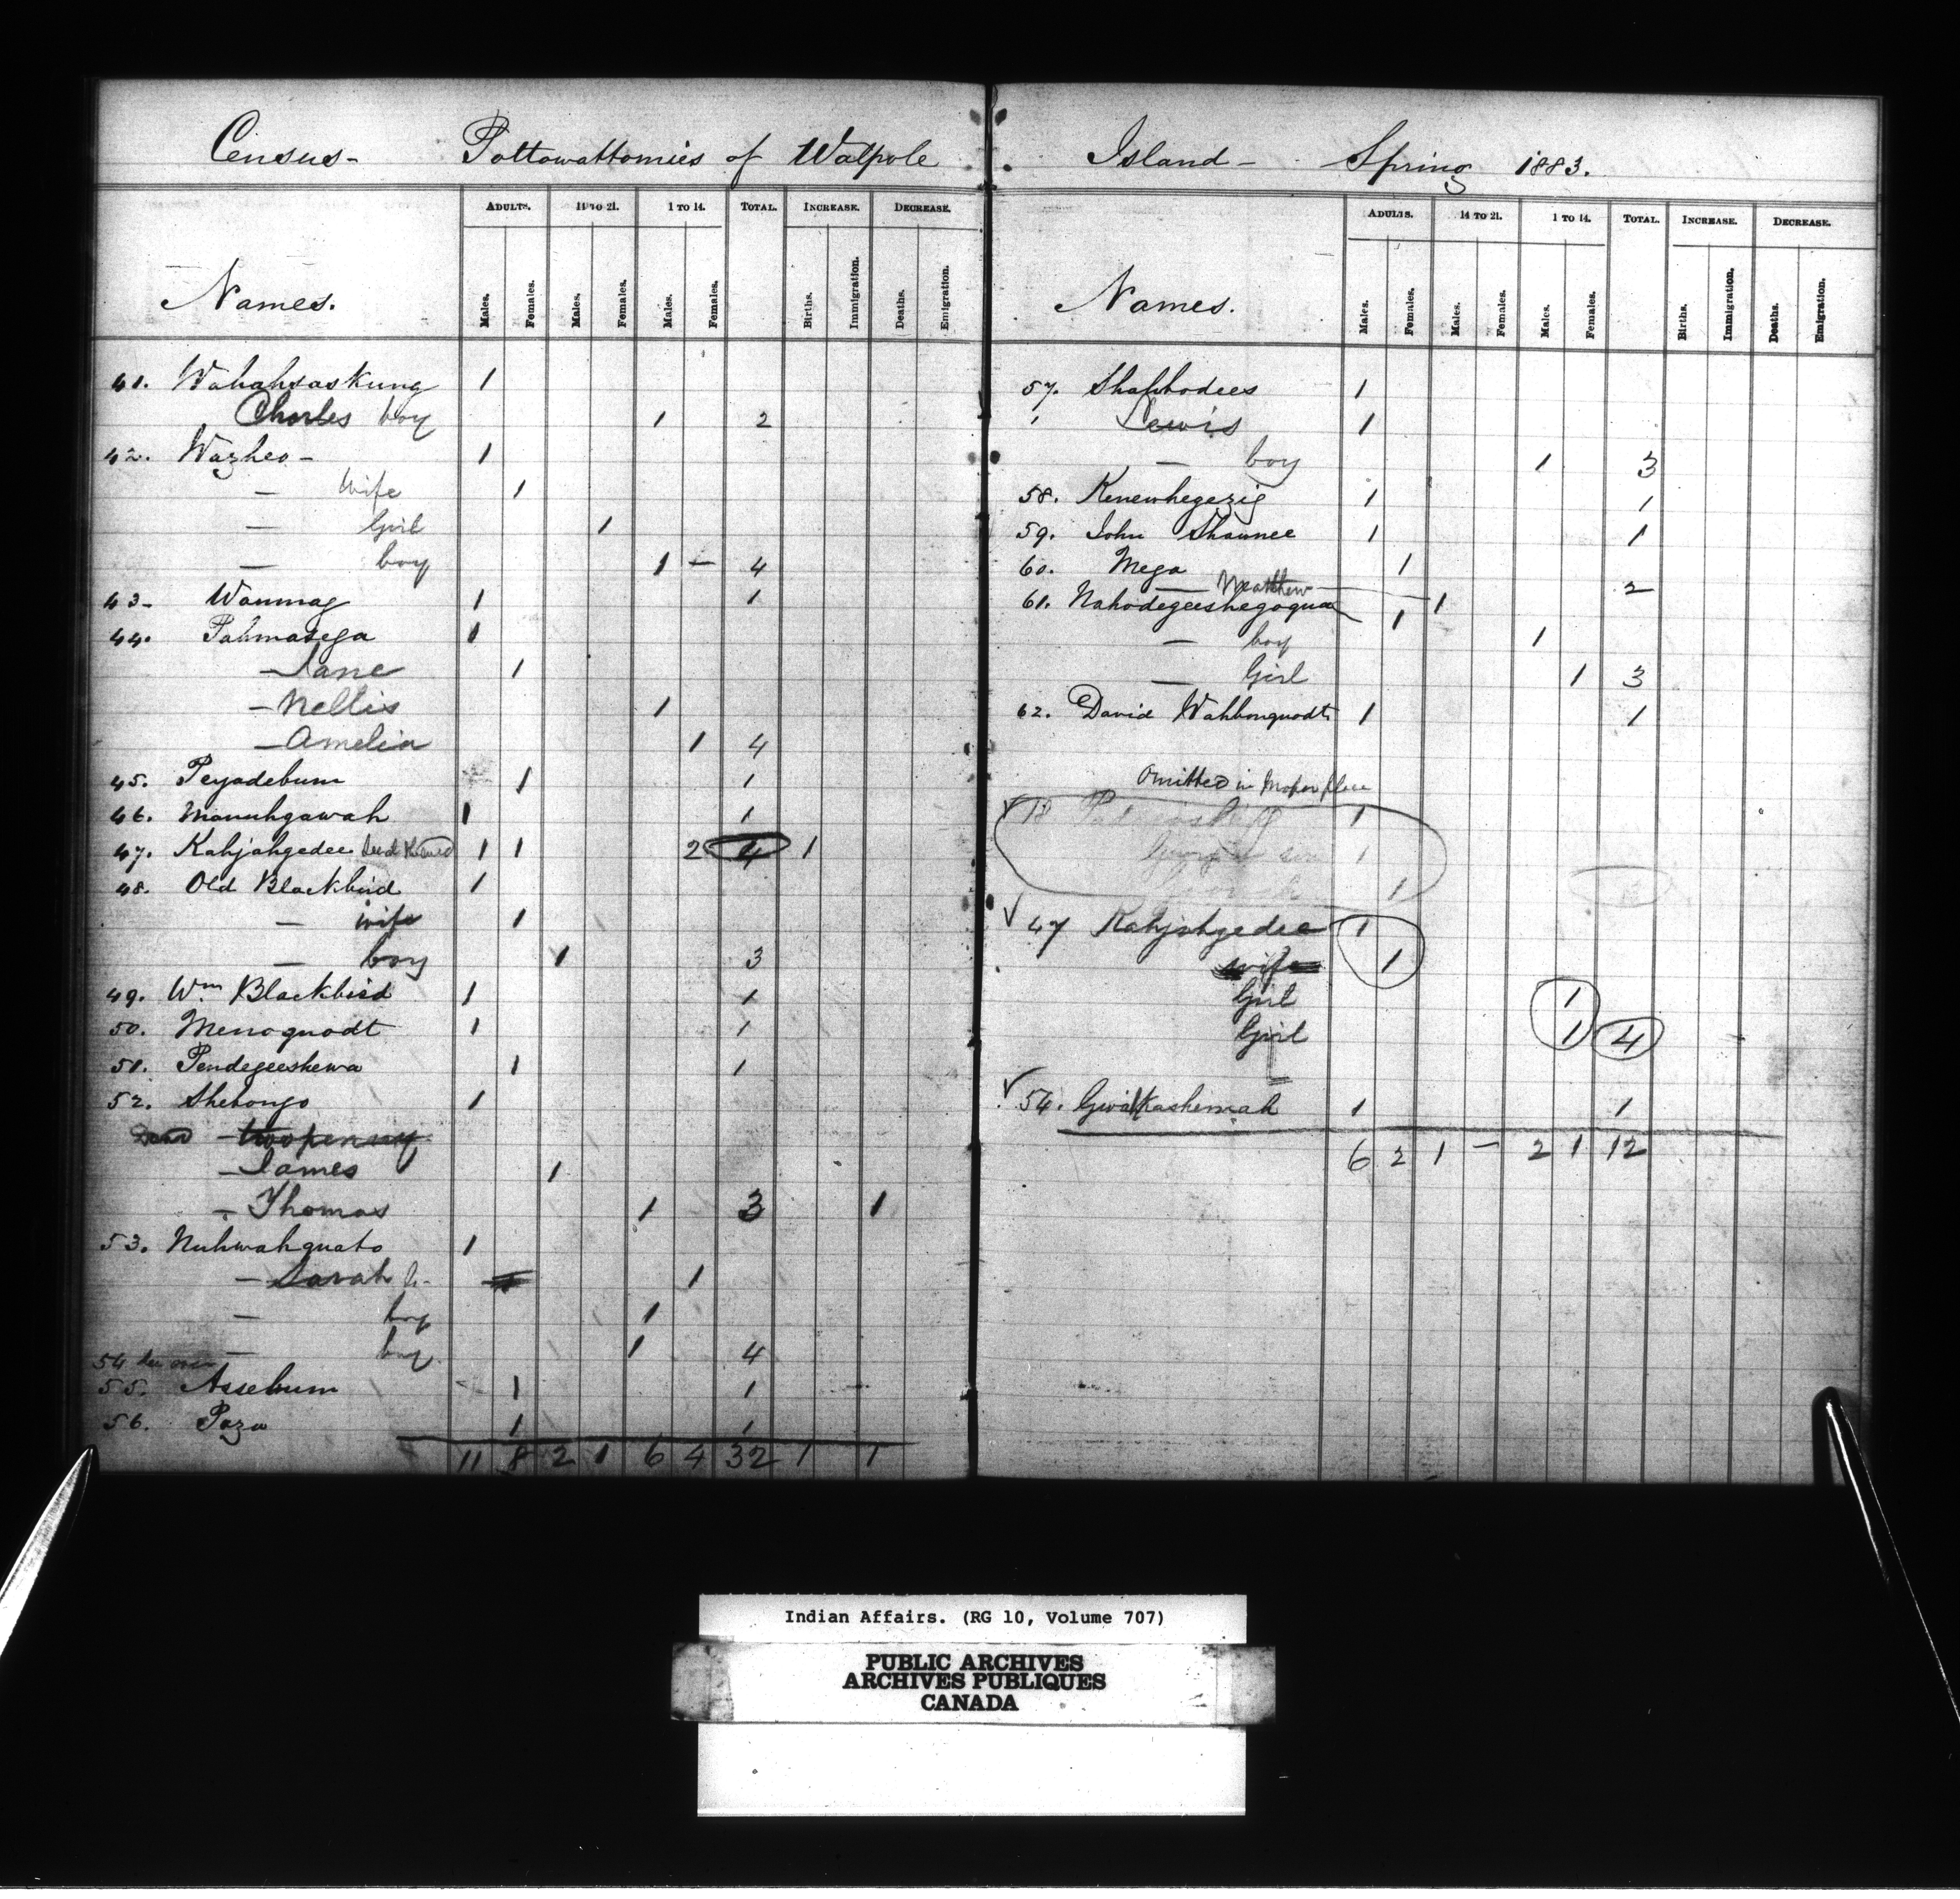 Census - Pottowattomies of Walpole
ADULTS. 14 TO 21. 1 TO 14. TOTAL. INCREASE. DECREASE.
Names. Males. Females. Males. Females. Males. Females. Births. Immigration. Deaths. Emigration.
41. Wahahsaskung 1
Charles boy 1 2
42. Wazheo - 1
— Wife 1
— Girl 1
— boy 1 — 4
43 - Wanmag 1 1
44. Pahmasega 1
— Jane 1
— Nellis 1
— Amelia 1 4
45. Peyadebum 1 1
46. Manuhgawah 1 1
47. Kahjahgedee 1 1 2 4 1
48. Old Blackbird 1
— wife 1
— boy 1 3
49. Wm Blackbird 1 1
50. Menoquodt 1 1
51. Pendegeeshewa 1 1
52. Shebongo 1
Dead
— James 1
— Thomas 1 3 1
53. Nuhwahquato 1
— Sarah 1
— boy 1
— boy 1 4
54 see over
55. Assebum 1 1
56. Paza 1 1
11 8 2 1 6 4 32 1 1
Island - Spring 1883.
ADULTS. 14 TO 21. 1 TO 14. TOTAL. INCREASE. DECREASE.
Names. Males. Females. Males. Females. Males. Females. Births. Immigration. Deaths. Emigration.
57. Shaphodees 1
Lewis 1
— boy 1 3
58. Kenewhegezig 1 1
59. John Shaunee 1 1
60. Mega 1
— Matthew 1 2
61. Nahodegeeshegoqua 1
— boy 1
— Girl 1 3
62. David Wahbonquodt 1 1
Omitted in proper place
18 1
son 1
1
47 Kahjahgedee 1
wife 1
Girl 1
Girl 1 4
54. Gwalkashemah 1 1
6 2 1 — 2 1 12
Indian Affairs. (RG 10, Volume 707)
PUBLIC ARCHIVES
ARCHIVES PUBLIQUES
CANADA